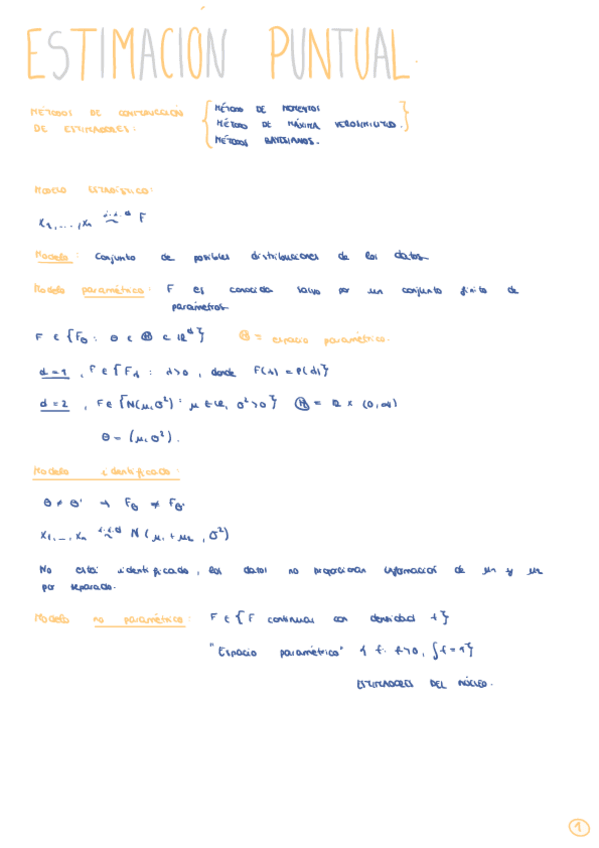 ESTIMACIÓN PUNTUAL.
MÉTODOS DE CONSTRUCCIÓN DE ESTIMADORES: { MÉTODO DE MOMENTOS
MÉTODO DE MÁXIMA VEROSIMILITUD.
MÉTODOS BAYESIANOS. }
MODELO ESTADÍSTICO:
X₁,...,Xₙ i.i.d ~ F
Modelo: Conjunto de posibles distribuciones de los datos
Modelo paramétrico: F es conocida salvo por un conjunto finito de
parámetros
F ∈ {F_θ : θ ∈ Θ ⊂ ℝ^d} Θ = espacio paramétrico.
d=1, F ∈ {F_λ : λ>0, donde F(λ) = P(λ)}
d=2, F ∈ {N(μ,σ²) : μ ∈ ℝ, σ²>0} Θ = ℝ × (0,∞)
θ = (μ,σ²).
Modelo identificado:
θ ≠ θ' → F_θ ≠ F_θ'
X₁,...,Xₙ i.i.d ~ N(μ₁+μ₂, σ²)
No está identificado, los datos no proporcionan información de μ₁ y μ₂
por separado.
Modelo no paramétrico: F ∈ {F continuas con densidad f}
"Espacio paramétrico" {f: f>0, ∫f=1}
ESTIMADORES DEL NÚCLEO.
1